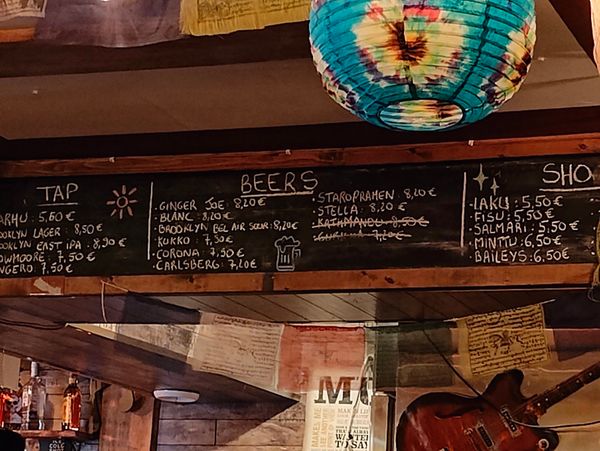 TAP
ARHU : 5,60 €
OOKLYN LAGER : 8,50 €
OOKLYN EAST IPA : 8,90 €
OWMOORE : 7,50 €
NGERO : 7,50 €
BEERS
• GINGER JOE : 8,20 €
• BLANC : 8,20 €
• BROOKLYN BEL AIR SOUR : 8,20 €
• KUKKO : 7,50 €
• CORONA : 7,50 €
• CARLSBERG : 7,20 €
• STAROPRAMEN : 8,20 €
• STELLA : 8,20 €
• KATHMANDU : 8,50 €
7,20 €
SHO
• LAKU : 5,50 €
• FISU : 5,50 €
• SALMARI : 5,50 €
• MINTTU : 6,50 €
• BAILEYS : 6,50 €
MAKES ME